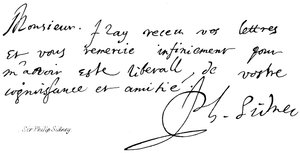 Monsieur. J'ay receu vos lettres
et vous remercie infiniement pour
m'avoir esté liberall, de vostre
cognoissance et amitié.
Ph. Sidney
Sir Philip Sidney.